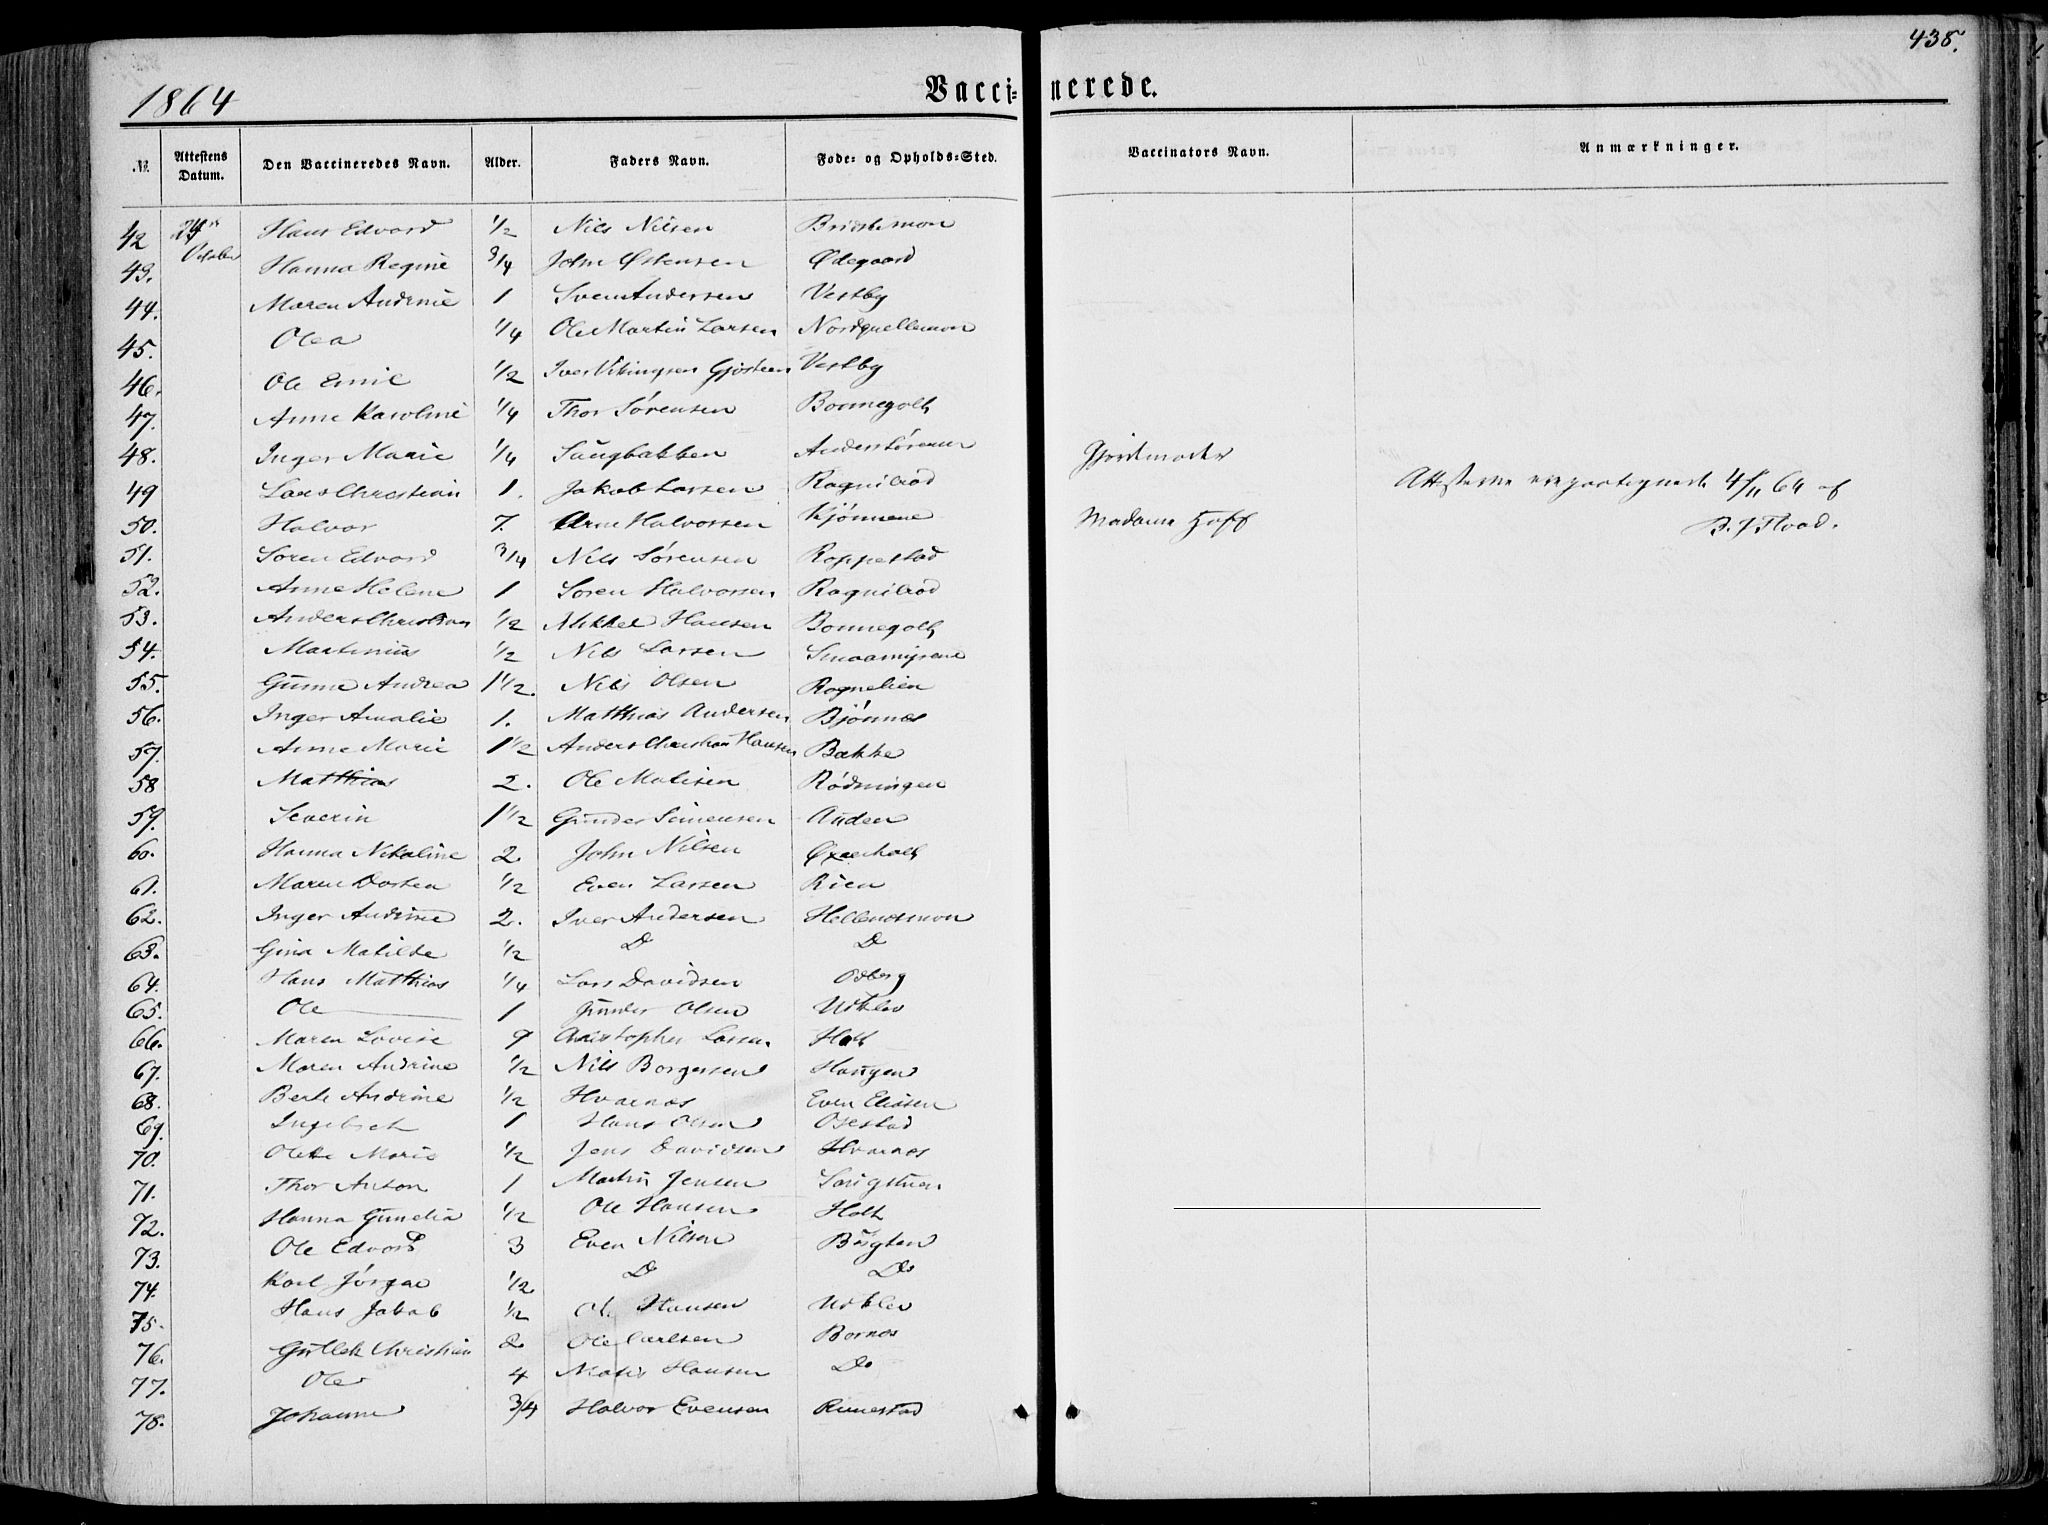 438.
1864
Vaccinerede.
№ Attestens Datum. Den Vaccineredes Navn. Alder. Faders Navn. Føde- og Opholds-Sted. Vaccinators Navn. Anmærkninger.
42 October Hans Edvard 1/2 Nils Nilsen
43. Hanna Regine 3/4 John Østensen Ødegaard
44. Maren Andrine 1 Sven Andersen Vestby
45. Olea 1/4 Ole Martin Larsen Nordquellemon
46. Ole Emil 1/2 Iver Vikingsen Gjøsteen Vestby
47. Anne Karoline 1/4 Thor Sørensen Bonnegolt
48. Inger Marie 1/4 Saugbakken Anders Sørensen Gjordemoder
49 Lars Christian 1. Jakob Larsen Ragnilrød Attesterne 4/11 64 af
50. Halvor 7. Arne Halvorsen Kjønnene Madame Hoff
51. Søren Edvard 3/4 Nils Sørensen Roppestad
52. Anne Helene 1 Søren Halvorsen Ragnilrød
53. Anders Christian 1/2 Mikkel Hansen Bonnegolt
54. Martinius 1/2 Nils Larsen Smaamyrene
55. Gunne Andrea 1 1/2. Nils Olsen Rognelien
56. Inger Amalie 1. Matthias Andersen Bjønnes
57. Anne Marie 1 1/2 Anders Christian Hansen Bakke
58 Matthias 2. Ole Matisen Rødningen
59. Severin 1 1/2 Gunder Simensen Auden
60. Hanna Nikoline 2. John Nilsen Øxenholt
61. Maren Dortea 1/2 Even Larsen Rien
62. Inger Andrine 2. Iver Andersen Hellenesmon
63. Gina Matilde 1/2 D D
64. Hans Matthias 1/4 Lars Davidsen Odberg
65. Ole 1 Gunder Olsen Udklev
66. Maren Lovise 9 Christopher Larsen Holt
67. Maren Andrine 1/2 Nils Borgersen Haugen
68. Berte Andrine 1/2 Hvarnes Even Eliasen
69. Ingebret 1 Hans Olsen Opestad
70. Olette Marie 1/2 Jens Davidsen Hvarnes
71. Thor Anton 1 Martin Jensen Saugstuen
72. Hanna Gunelia 1/2 Ole Hansen Holt
73. Ole Edvard 3 Even Nilsen
74. Karl Jørgen 1/2 D Do
75. Hans Jakob 1/2 Ole Hansen Udklev
76. Gullek Christian 2 Ole Carlsen Bornes
77. Ole 4 Matis Hansen Do
78. Johanne 3/4 Halvor Evensen Rimestad